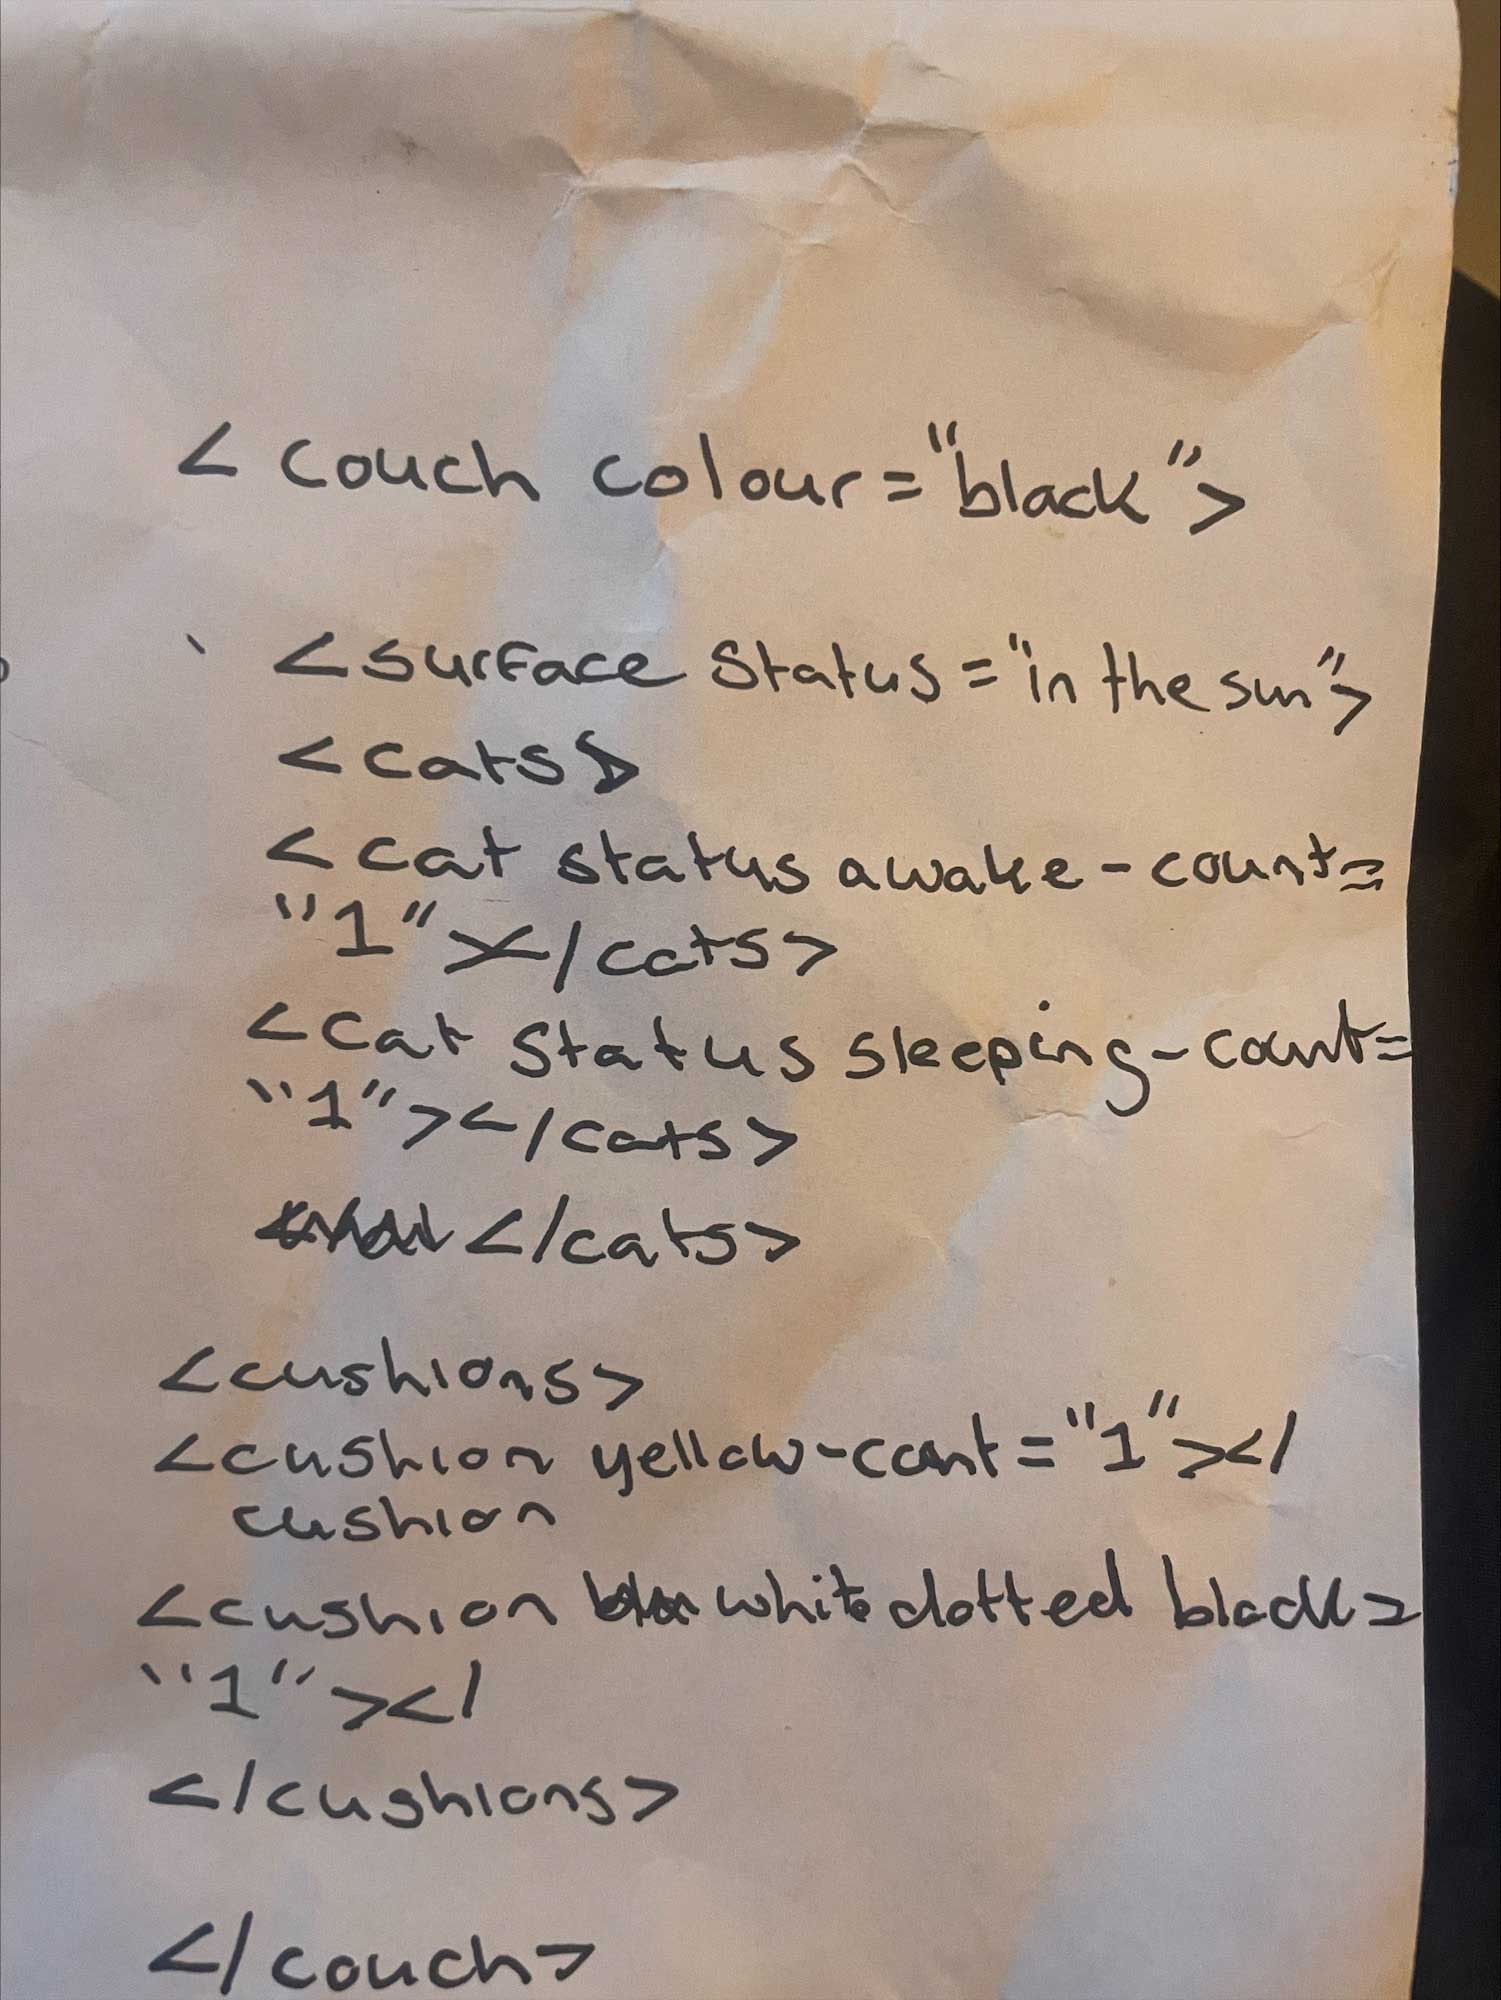 < couch colour="black">
<surface status="in the sun">
<cats>
<cat status awake-count=
"1"></cats>
<cat status sleeping-count=
"1"></cats>
</cats>
<cushions>
<cushion yellow-count="1"></
cushion
<cushion white dotted black=
"1"></
</cushions>
</couch>